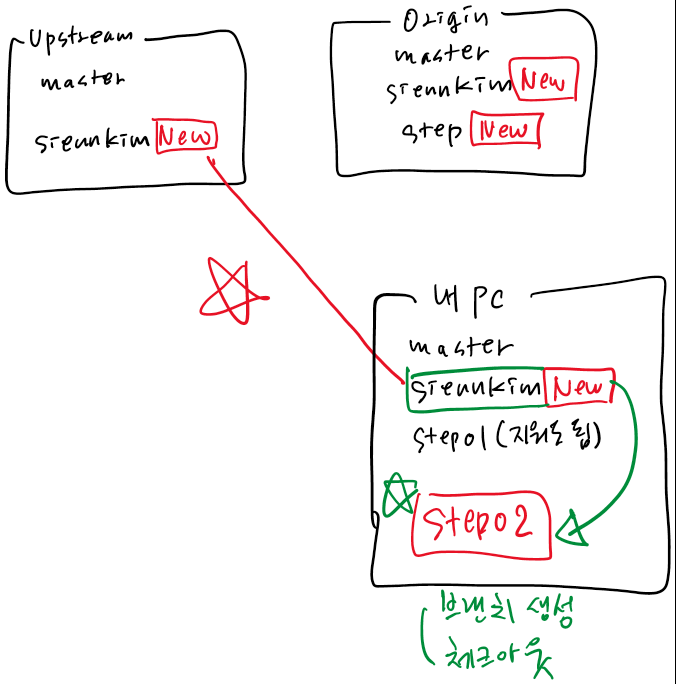 Upstream
master
sieunkim New
Origin
master
sieunkim New
step New
내 PC
master
sieunkim New
step01 (지워도 됨)
step02
브랜치 생성
체크아웃